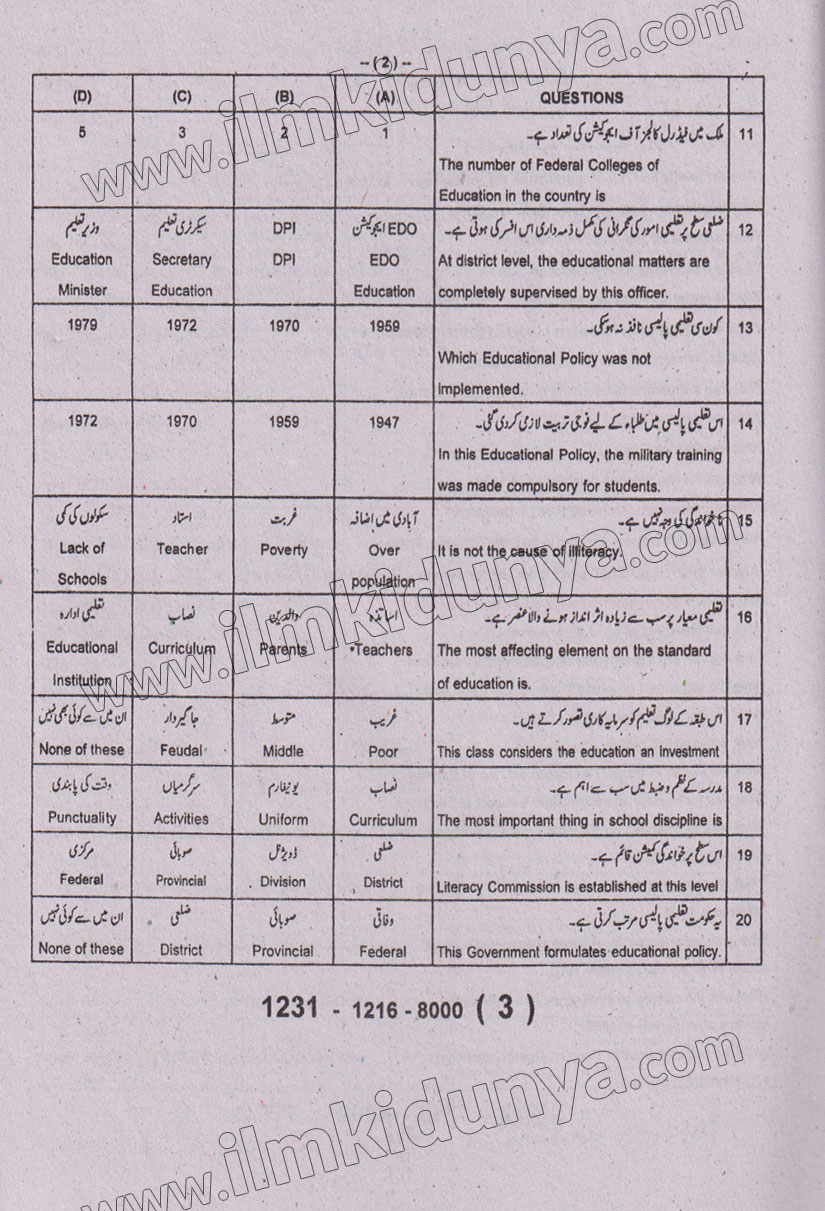 --(2)--
(D) (C) (B) (A) QUESTIONS
5 3 2 1 ملک میں فیڈرل کالجز آف ایجوکیشن کی تعداد ہے۔ 11
The number of Federal Colleges of
Education in the country is
وزیر تعلیم سیکرٹری تعلیم DPI EDO ایجوکیشن ضلعی سطح پر تعلیمی امور کی نگرانی کی مکمل ذمہ داری اس افسر کی ہوتی ہے۔ 12
Education Secretary DPI EDO At district level, the educational matters are
Minister Education Education completely supervised by this officer.
1979 1972 1970 1959 کون سی تعلیمی پالیسی نافذ نہ ہو سکی۔ 13
Which Educational Policy was not
implemented.
1972 1970 1959 1947 اس تعلیمی پالیسی میں طلباء کے لیے فوجی تربیت لازمی کر دی گئی۔ 14
In this Educational Policy, the military training
was made compulsory for students.
سکولوں کی کمی استاد غربت آبادی میں اضافہ نا خواندگی کی وجہ نہیں ہے۔ 15
Lack of Teacher Poverty Over It is not the cause of illiteracy.
Schools population
تعلیمی ادارہ نصاب والدین اساتذہ تعلیمی معیار پر سب سے زیادہ اثر انداز ہونے والا عنصر ہے۔ 16
Educational Curriculum Parents Teachers The most affecting element on the standard
Institution of education is.
ان میں سے کوئی بھی نہیں جاگیردار متوسط غریب اس طبقہ کے لوگ تعلیم کو سرمایہ کاری تصور کرتے ہیں۔ 17
None of these Feudal Middle Poor This class considers the education an investment
وقت کی پابندی سرگرمیاں یونیفارم نصاب مدرسہ کے نظم و ضبط میں سب سے اہم ہے۔ 18
Punctuality Activities Uniform Curriculum The most important thing in school discipline is
مرکزی صوبائی ڈویژنل ضلعی اس سطح پر خواندگی کمیشن قائم ہے۔ 19
Federal Provincial Division District Literacy Commission is established at this level
ان میں سے کوئی نہیں ضلعی صوبائی وفاقی یہ حکومت تعلیمی پالیسی مرتب کرتی ہے۔ 20
None of these District Provincial Federal This Government formulates educational policy.
1231 - 1216 - 8000 ( 3 )
www.ilmkidunya.com
www.ilmkidunya.com
www.ilmkidunya.com